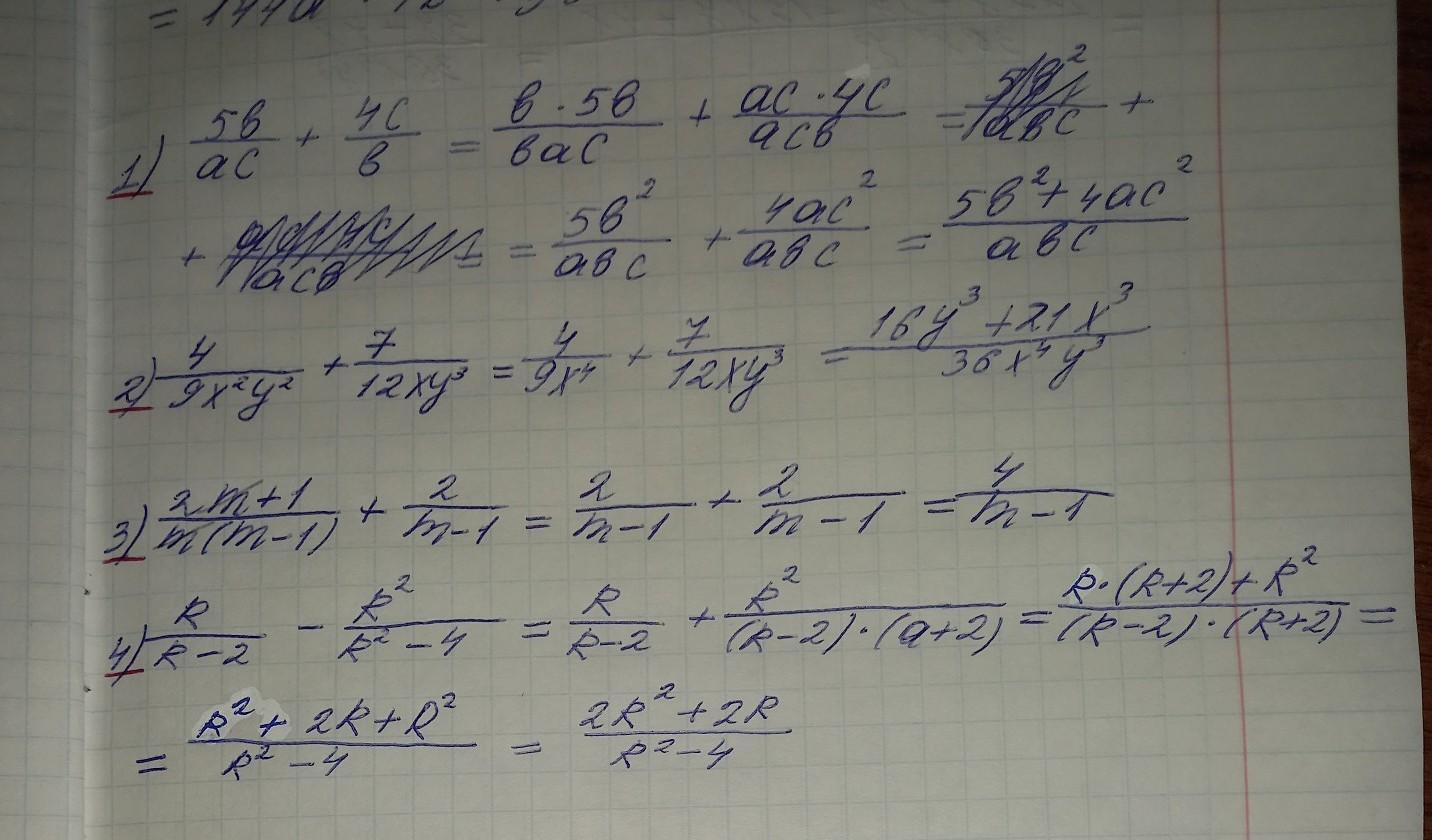 = 144a
1) 5b/ac + 4c/b = b · 5b/bac + ac · 4c/acb = 5b²/abc +
+ /acb = 5b²/abc + 4ac²/abc = 5b² + 4ac²/abc
2) 4/9x²y² + 7/12xy³ = 4/9x⁴ + 7/12xy³ = 16y³ + 21x³/36x⁴y³
3) 2m+1/m(m-1) + 2/m-1 = 2/m-1 + 2/m-1 = 4/m-1
4) R/R-2 - R²/R²-4 = R/R-2 + R²/(R-2)·(a+2) = R·(R+2)+R²/(R-2)·(R+2) =
= R² + 2R + R²/R²-4 = 2R² + 2R/R²-4